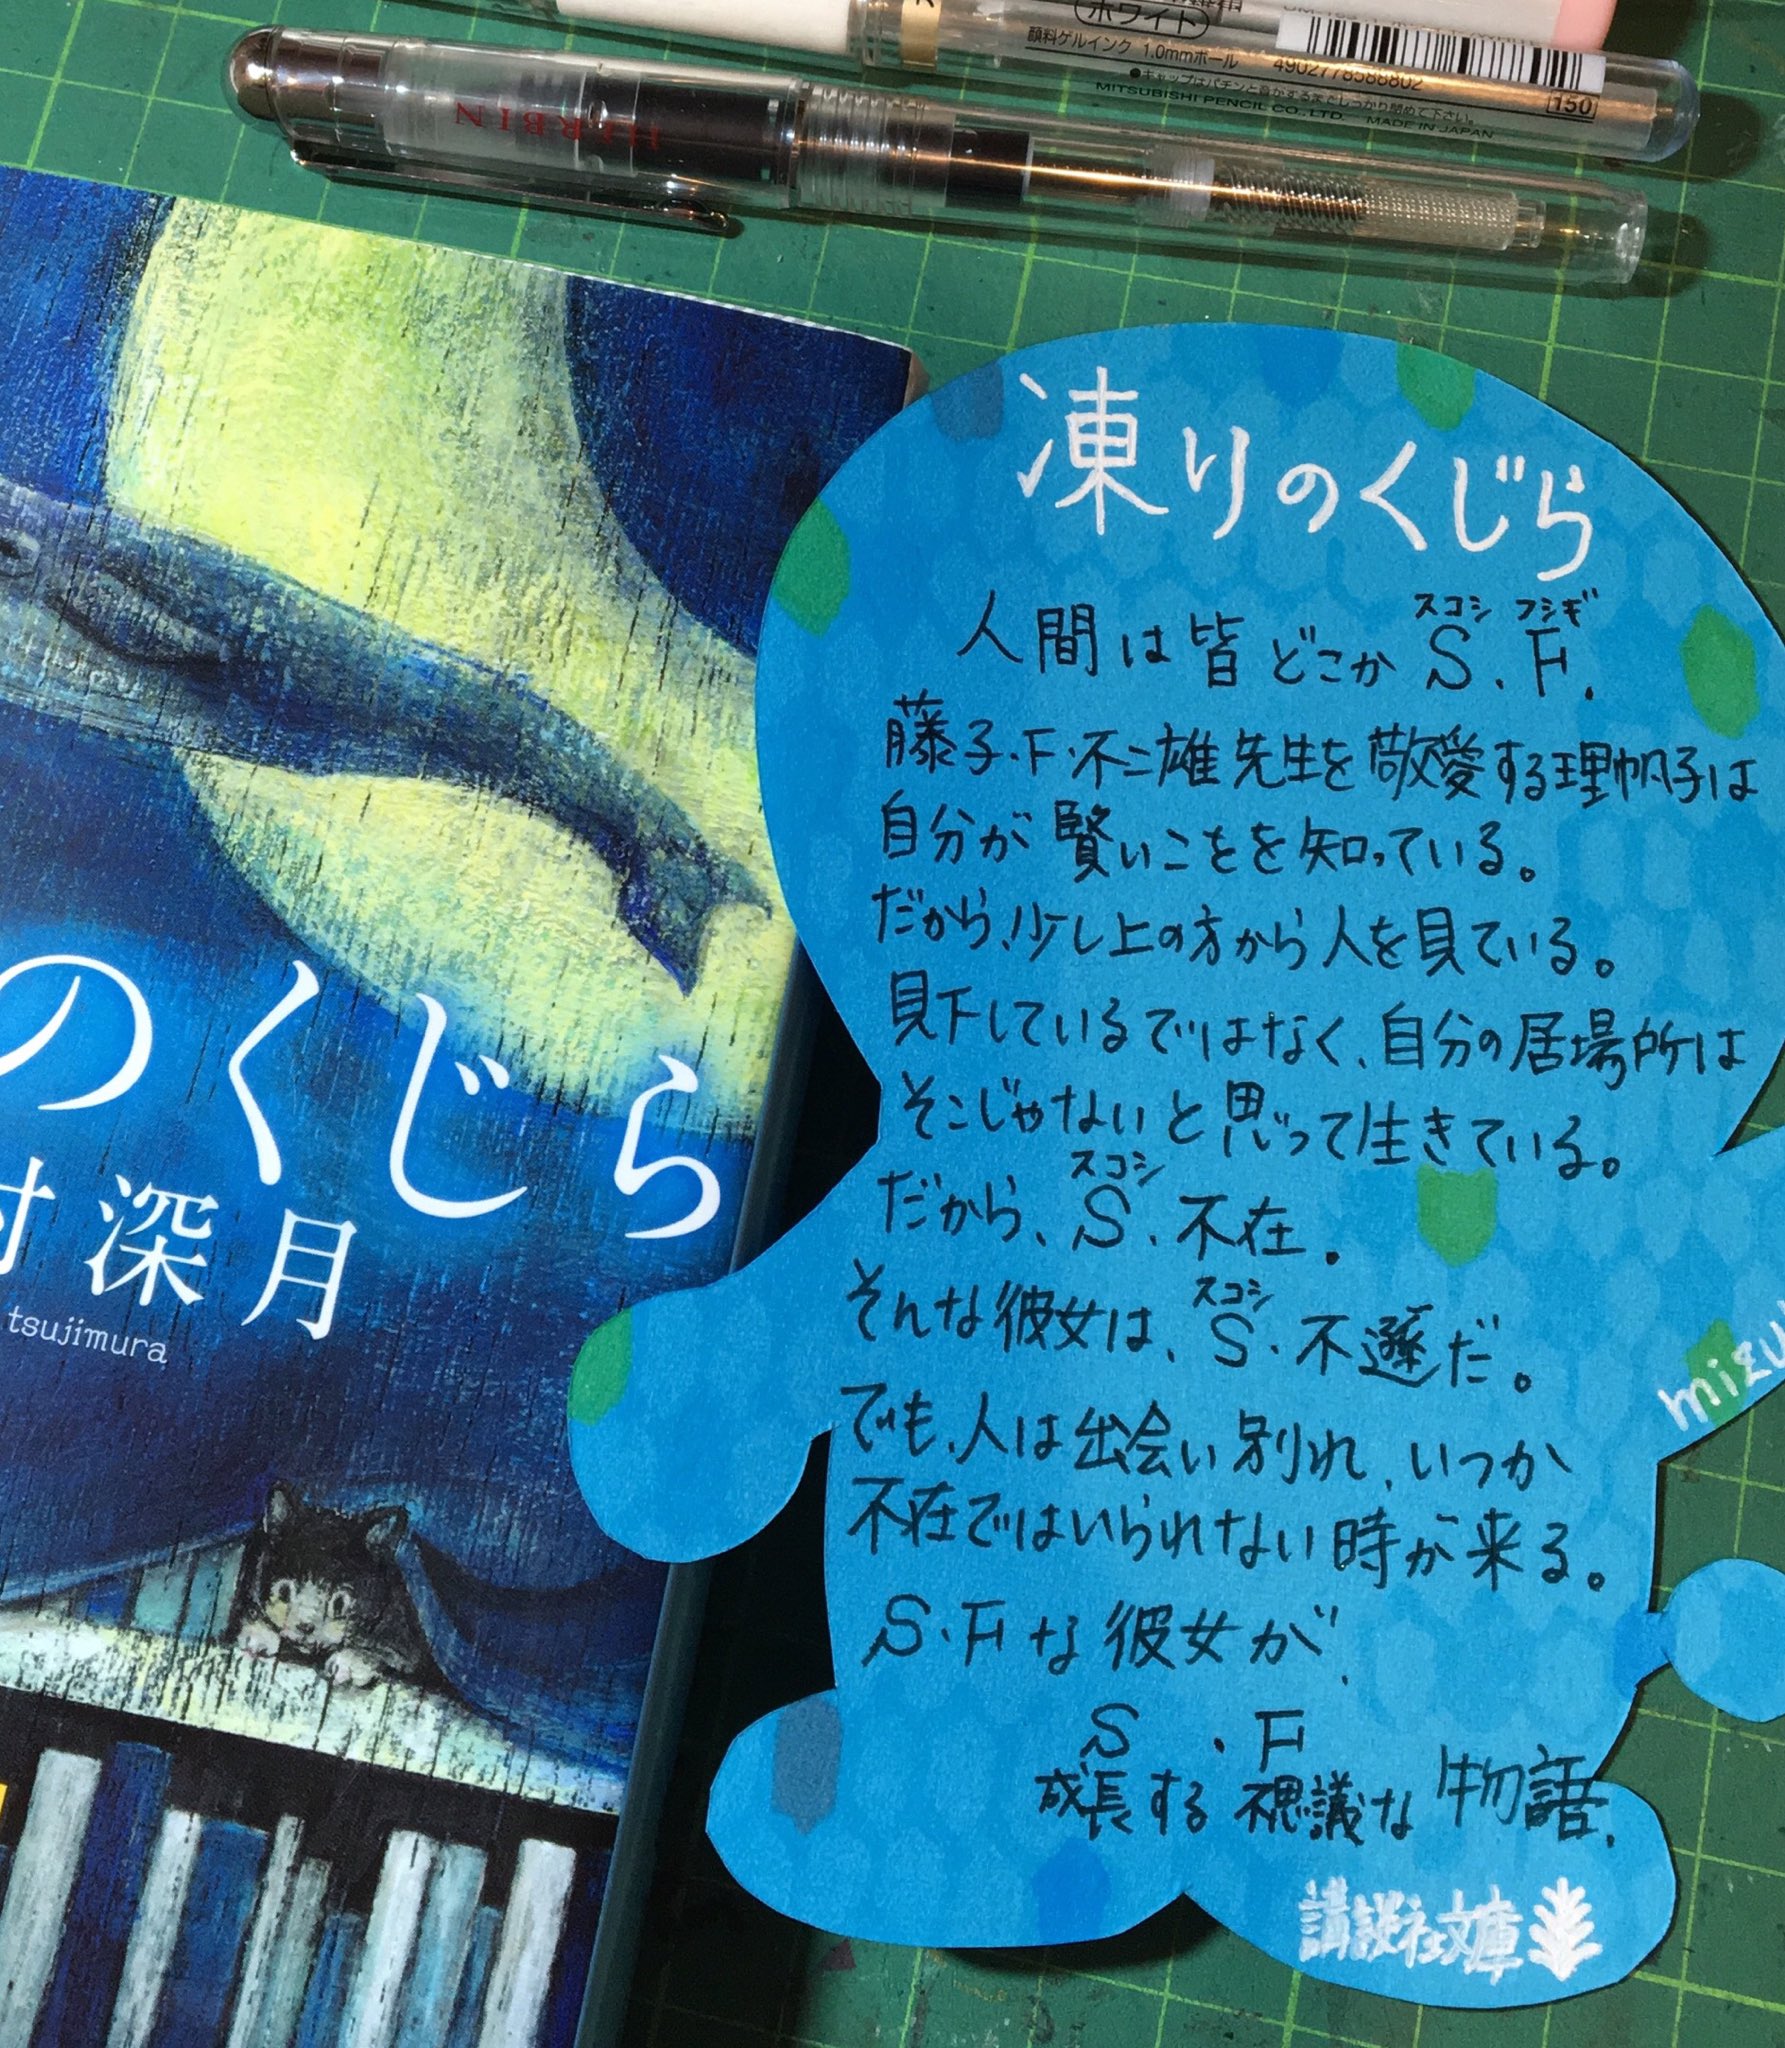 ホワイト
顔料ゲルインク 1.0mmボール
4902778588802
●キャップはパチンと音がするまでしっかり閉めて下さい。
MITSUBISHI PENCIL CO., LTD. MADE IN JAPAN
150
HERBIN
のくじら
村深月
tsujimura
凍りのくじら
スコシ フシギ
人間は皆どこかS.F.
藤子・F・不二雄先生を敬愛する理帆子は
自分が賢いことを知っている。
だから、少し上の方から人を見ている。
見下しているではなく、自分の居場所は
そこじゃないと思って生きている。
スコシ
だから、S・不在.
スコシ
そんな彼女は、S・不遜だ。
でも、人は出会い別れ、いつか
不在ではいられない時が来る。
S・Fな彼女が、
S・F
成長する不思議な物語.
mizu
講談社文庫